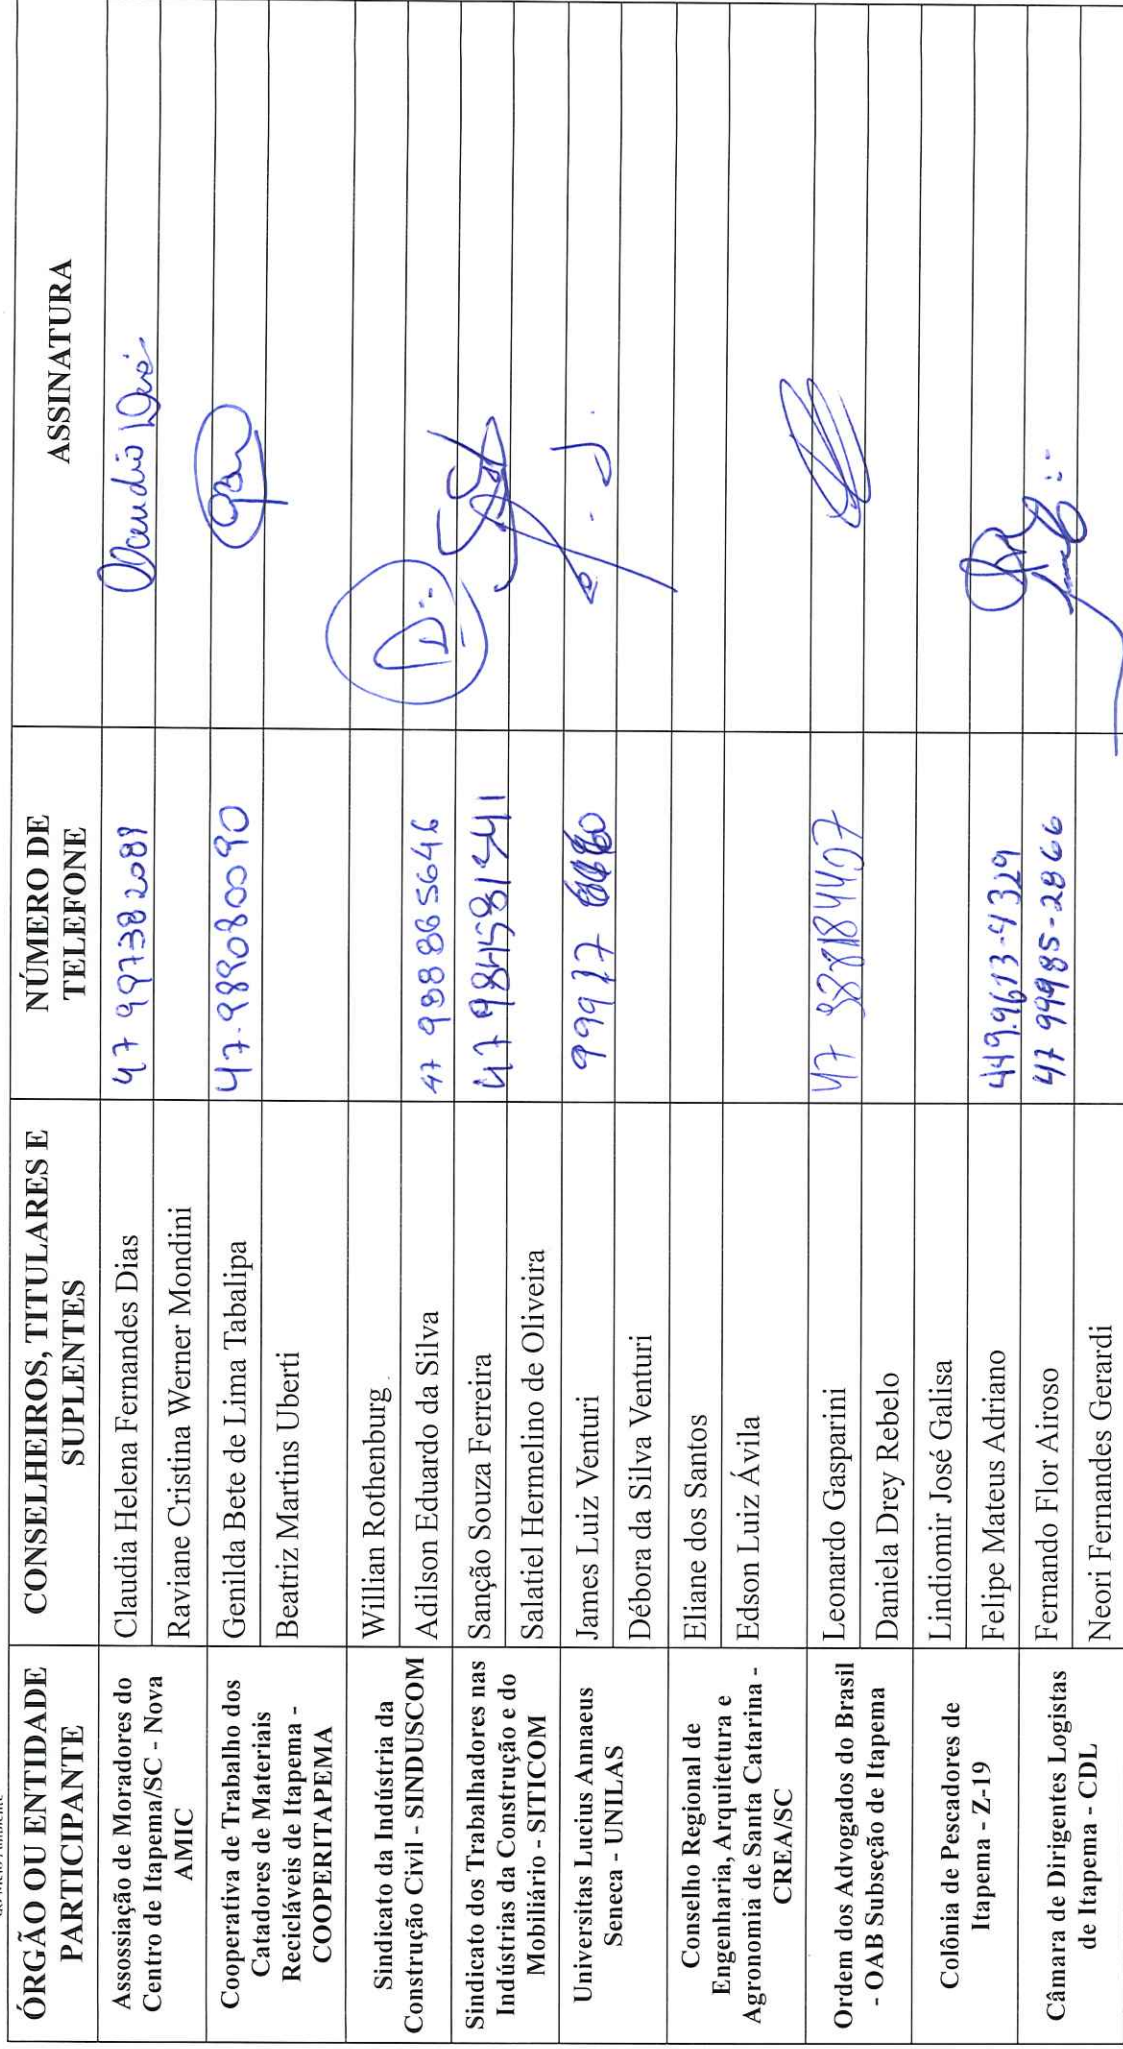 do Meio Ambiente
ÓRGÃO OU ENTIDADE
PARTICIPANTE
CONSELHEIROS, TITULARES E
SUPLENTES
NÚMERO DE
TELEFONE
ASSINATURA
Assossiação de Moradores do
Centro de Itapema/SC - Nova
AMIC
Claudia Helena Fernandes Dias
47 997382089
Raviane Cristina Werner Mondini
Cooperativa de Trabalho dos
Catadores de Materiais
Recicláveis de Itapema -
COOPERITAPEMA
Genilda Bete de Lima Tabalipa
47-989080090
Beatriz Martins Uberti
Sindicato da Indústria da
Construção Civil - SINDUSCOM
Willian Rothenburg
Adilson Eduardo da Silva
47 988865646
Sindicato dos Trabalhadores nas
Indústrias da Construção e do
Mobiliário - SITICOM
Sanção Souza Ferreira
47
Salatiel Hermelino de Oliveira
Universitas Lucius Annaeus
Seneca - UNILAS
James Luiz Venturi
Débora da Silva Venturi
Conselho Regional de
Engenharia, Arquitetura e
Agronomia de Santa Catarina -
CREA/SC
Eliane dos Santos
Edson Luiz Ávila
Ordem dos Advogados do Brasil
- OAB Subseção de Itapema
Leonardo Gasparini
47
Daniela Drey Rebelo
Colônia de Pescadores de
Itapema - Z-19
Lindiomir José Galisa
Felipe Mateus Adriano
449.9613-4329
Câmara de Dirigentes Logistas
de Itapema - CDL
Fernando Flor Airoso
47 99985-2866
Neori Fernandes Gerardi